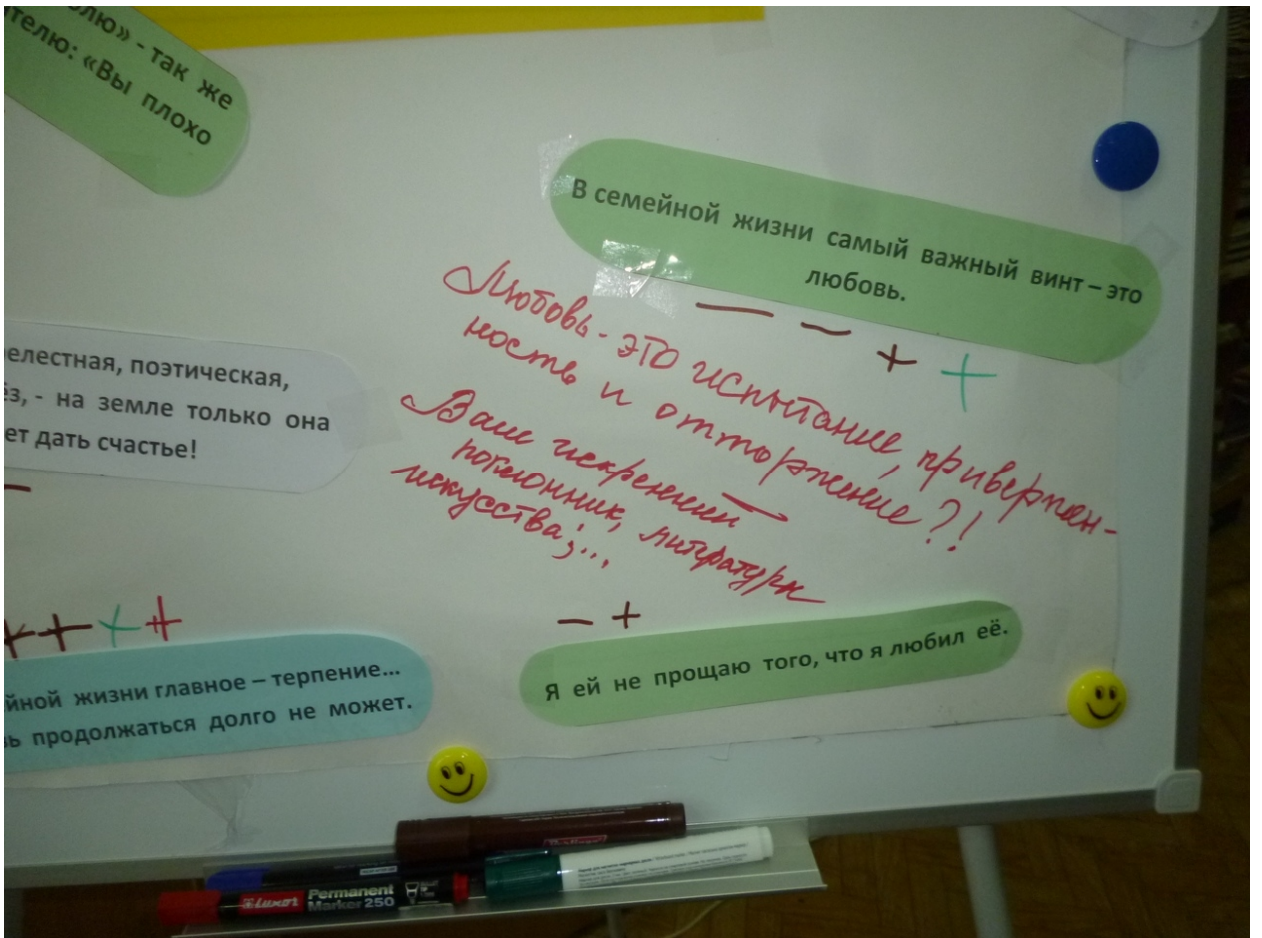 олю» - так же
ителю: «Вы плохо
В семейной жизни самый важный винт – это
любовь.
— — + +
Любовь - это испытание, привержен-
ность и отторжение?!
Ваш искренний
поклонник, литературы
искусства;...
релестная, поэтическая,
ёз, - на земле только она
ет дать счастье!
+ + + +
йной жизни главное – терпение...
вь продолжаться долго не может.
— +
Я ей не прощаю того, что я любил её.
Luxor Permanent
Marker 250